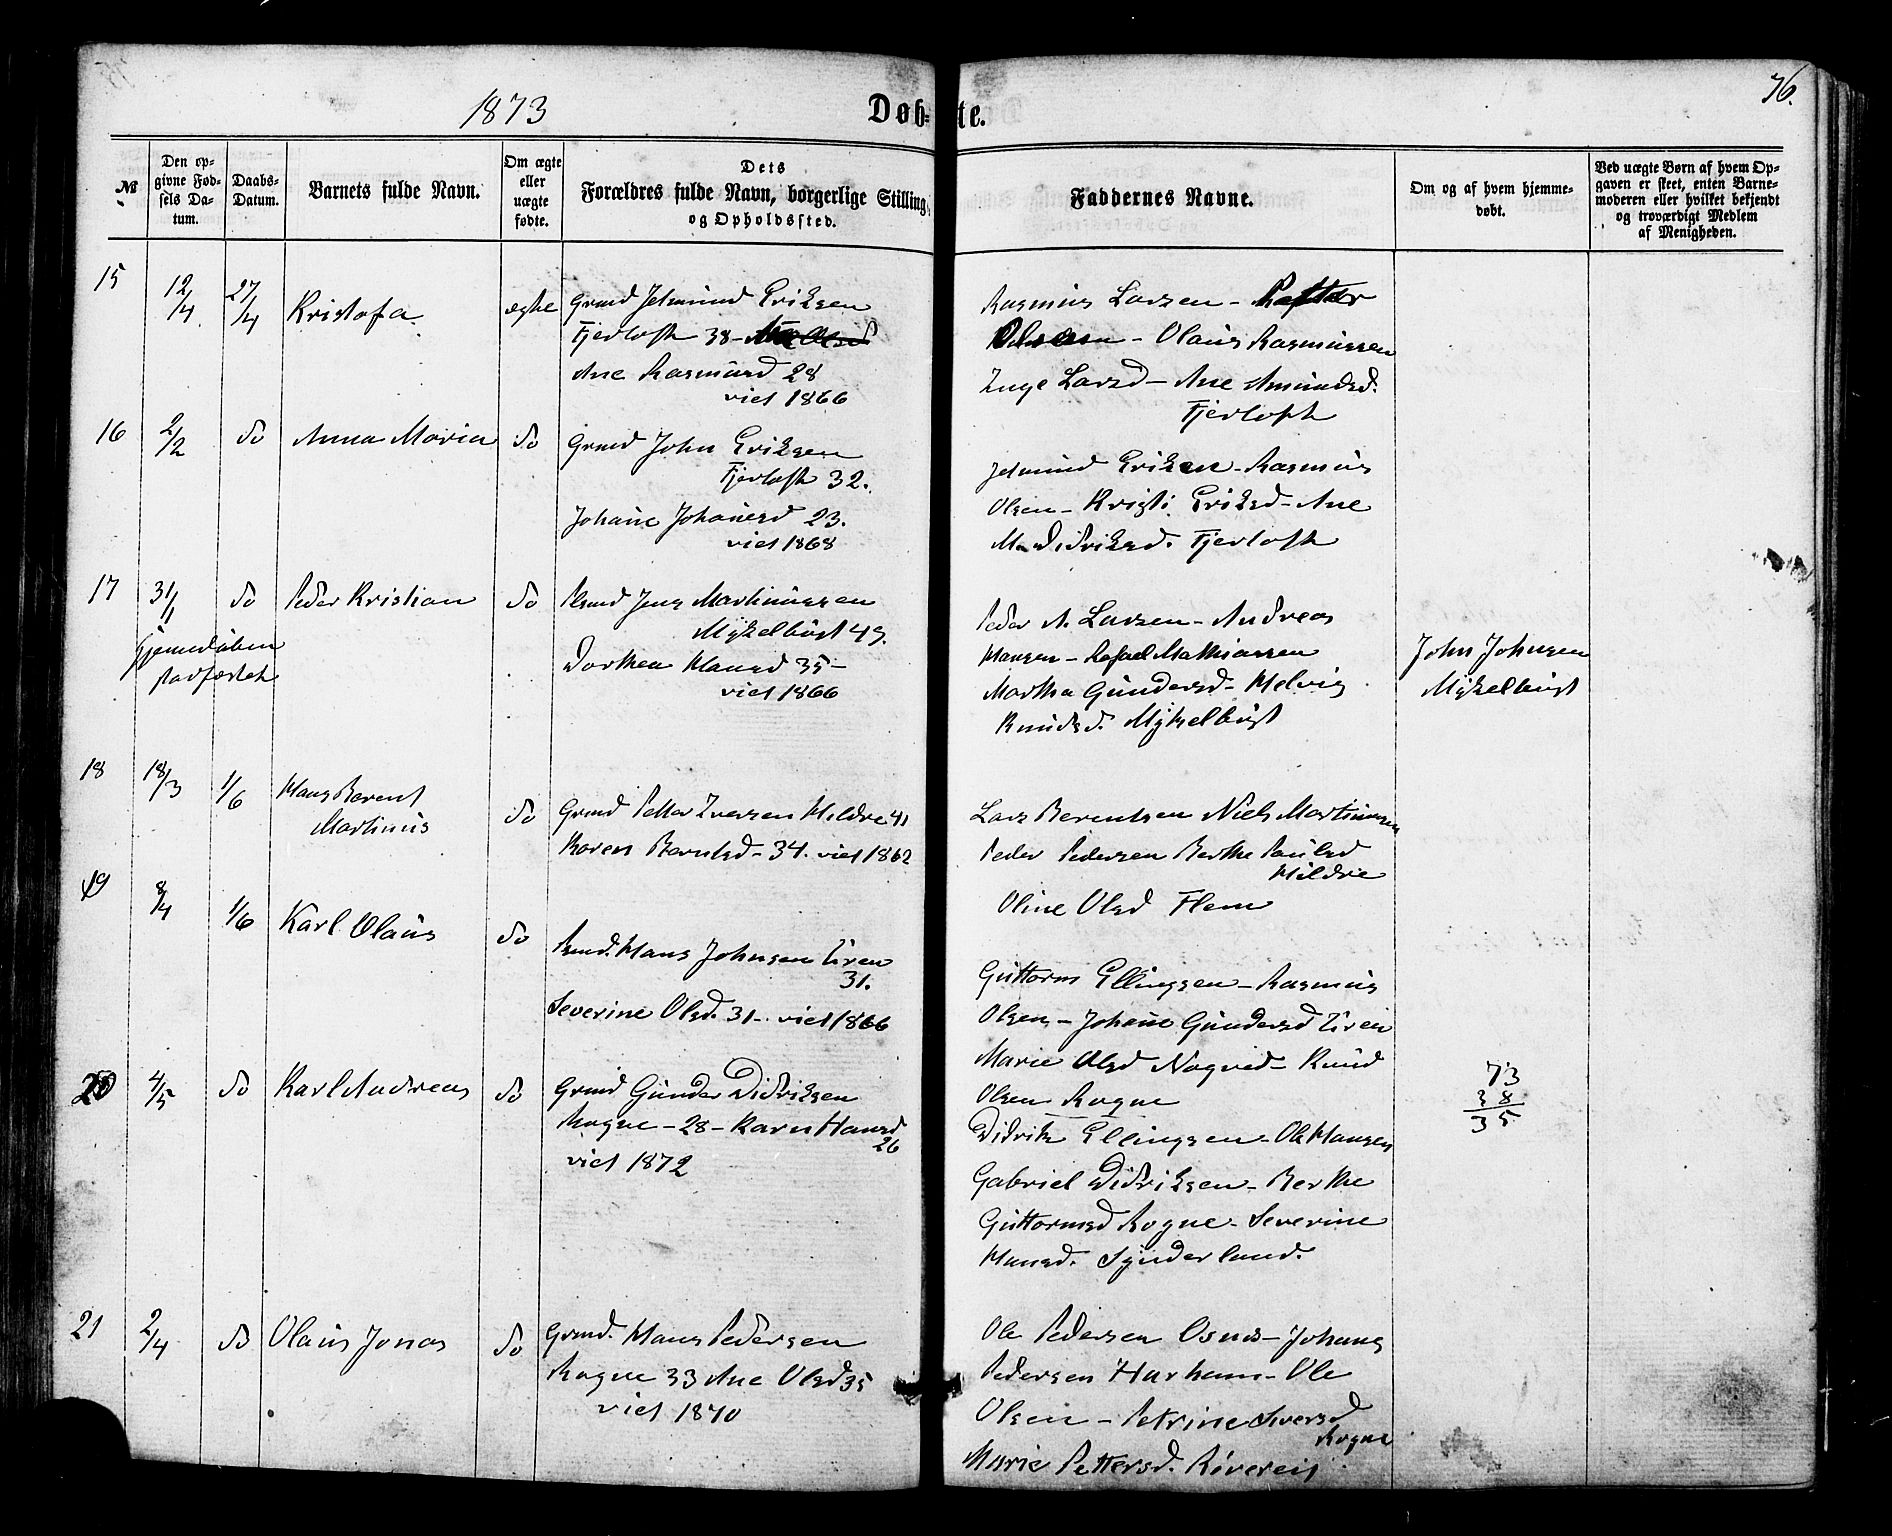 1873
Døb-te.
76.
№
Den op-
givne Fød-
sels Da-
tum.
Daabs-
Datum.
Barnets fulde Navn.
Om ægte
eller
uægte
fødte.
Dets
Forældres fulde Navn, borgerlige Stilling
og Opholdssted.
Faddernes Navne.
Om og af hvem hjemme-
døbt.
Ved uægte Børn af hvem Op-
gaven er skeet, enten Barne-
moderen eller hvilket bekjendt
og troværdigt Medlem
af Menigheden.
15
12/4
27/4
Kristofa
ægte
Grmd Jetmund Eriksen
Fjertoft 38-
Ane Rasmusd 28
viet 1866
Rasmus Larsen - Petter
Olsen - Olaus Rasmussen
Inge Larsd - Ane Amundsd.
Fjertoft
16
2/2
do
Anna Maria
do
Grmd John Eriksen
Fjertoft 32.
Johane Johanesd 23.
viet 1868
Jetmund Eriksen - Rasmus
Olsen - Kristi Eriksd - Ane
M. Didriksd. Fjertoft
17
31/1
do
Peder Kristian
do
Jens Martinussen
Myklebust 49.
Dorthea Hansd 35 -
viet 1866
Hjemmedøben
stadfæstet
Peder A. Larsen - Andreas
Hansen - Rafael Mathiassen
Martha Gundersd - Helvig
Knudsd. Myklebust
John Johnsen
Myklebust
18
18/3
1/6
Hans Berent
Martinus
do
Grmd Petter Iversen Hildre 41
Karen Berntsd - 34. viet 1862
Lars Berentsen Niels Martinussen
Peder Pedersen Berthe Paulsd
Hildre
Oline Olsd Flem
19
8/4
1/6
Karl Olaus
do
Hans Johnsen Uren
31.
Severine Olsd. 31 - viet 1866
Guttorm Ellingsen - Rasmus
Olsen - Johane Gundersd Uren
Marie Olsd Nogved - Knud
Olsen Rogne
20
4/5
do
Karl Andreas
do
Grmd Gunder Didriksen
Rogne - 28 - Karn Hansd
26
viet 1872
Didrik Ellingsen - Ole Hansen
Gabriel Didriksen - Berthe
Guttormsd Rogne - Severine
Hansd. Synderland.
73
38
35
21
2/4
do
Olaus Jonas
do
Grmd. Hans Pedersen
Rogne 33 Ane Olsd 35
viet 1870
Ole Pedersen Osnes - Johans
Pedersen Harham - Ole
Olsen - Petrine Iversd
Rogne
Marie Pettersd.